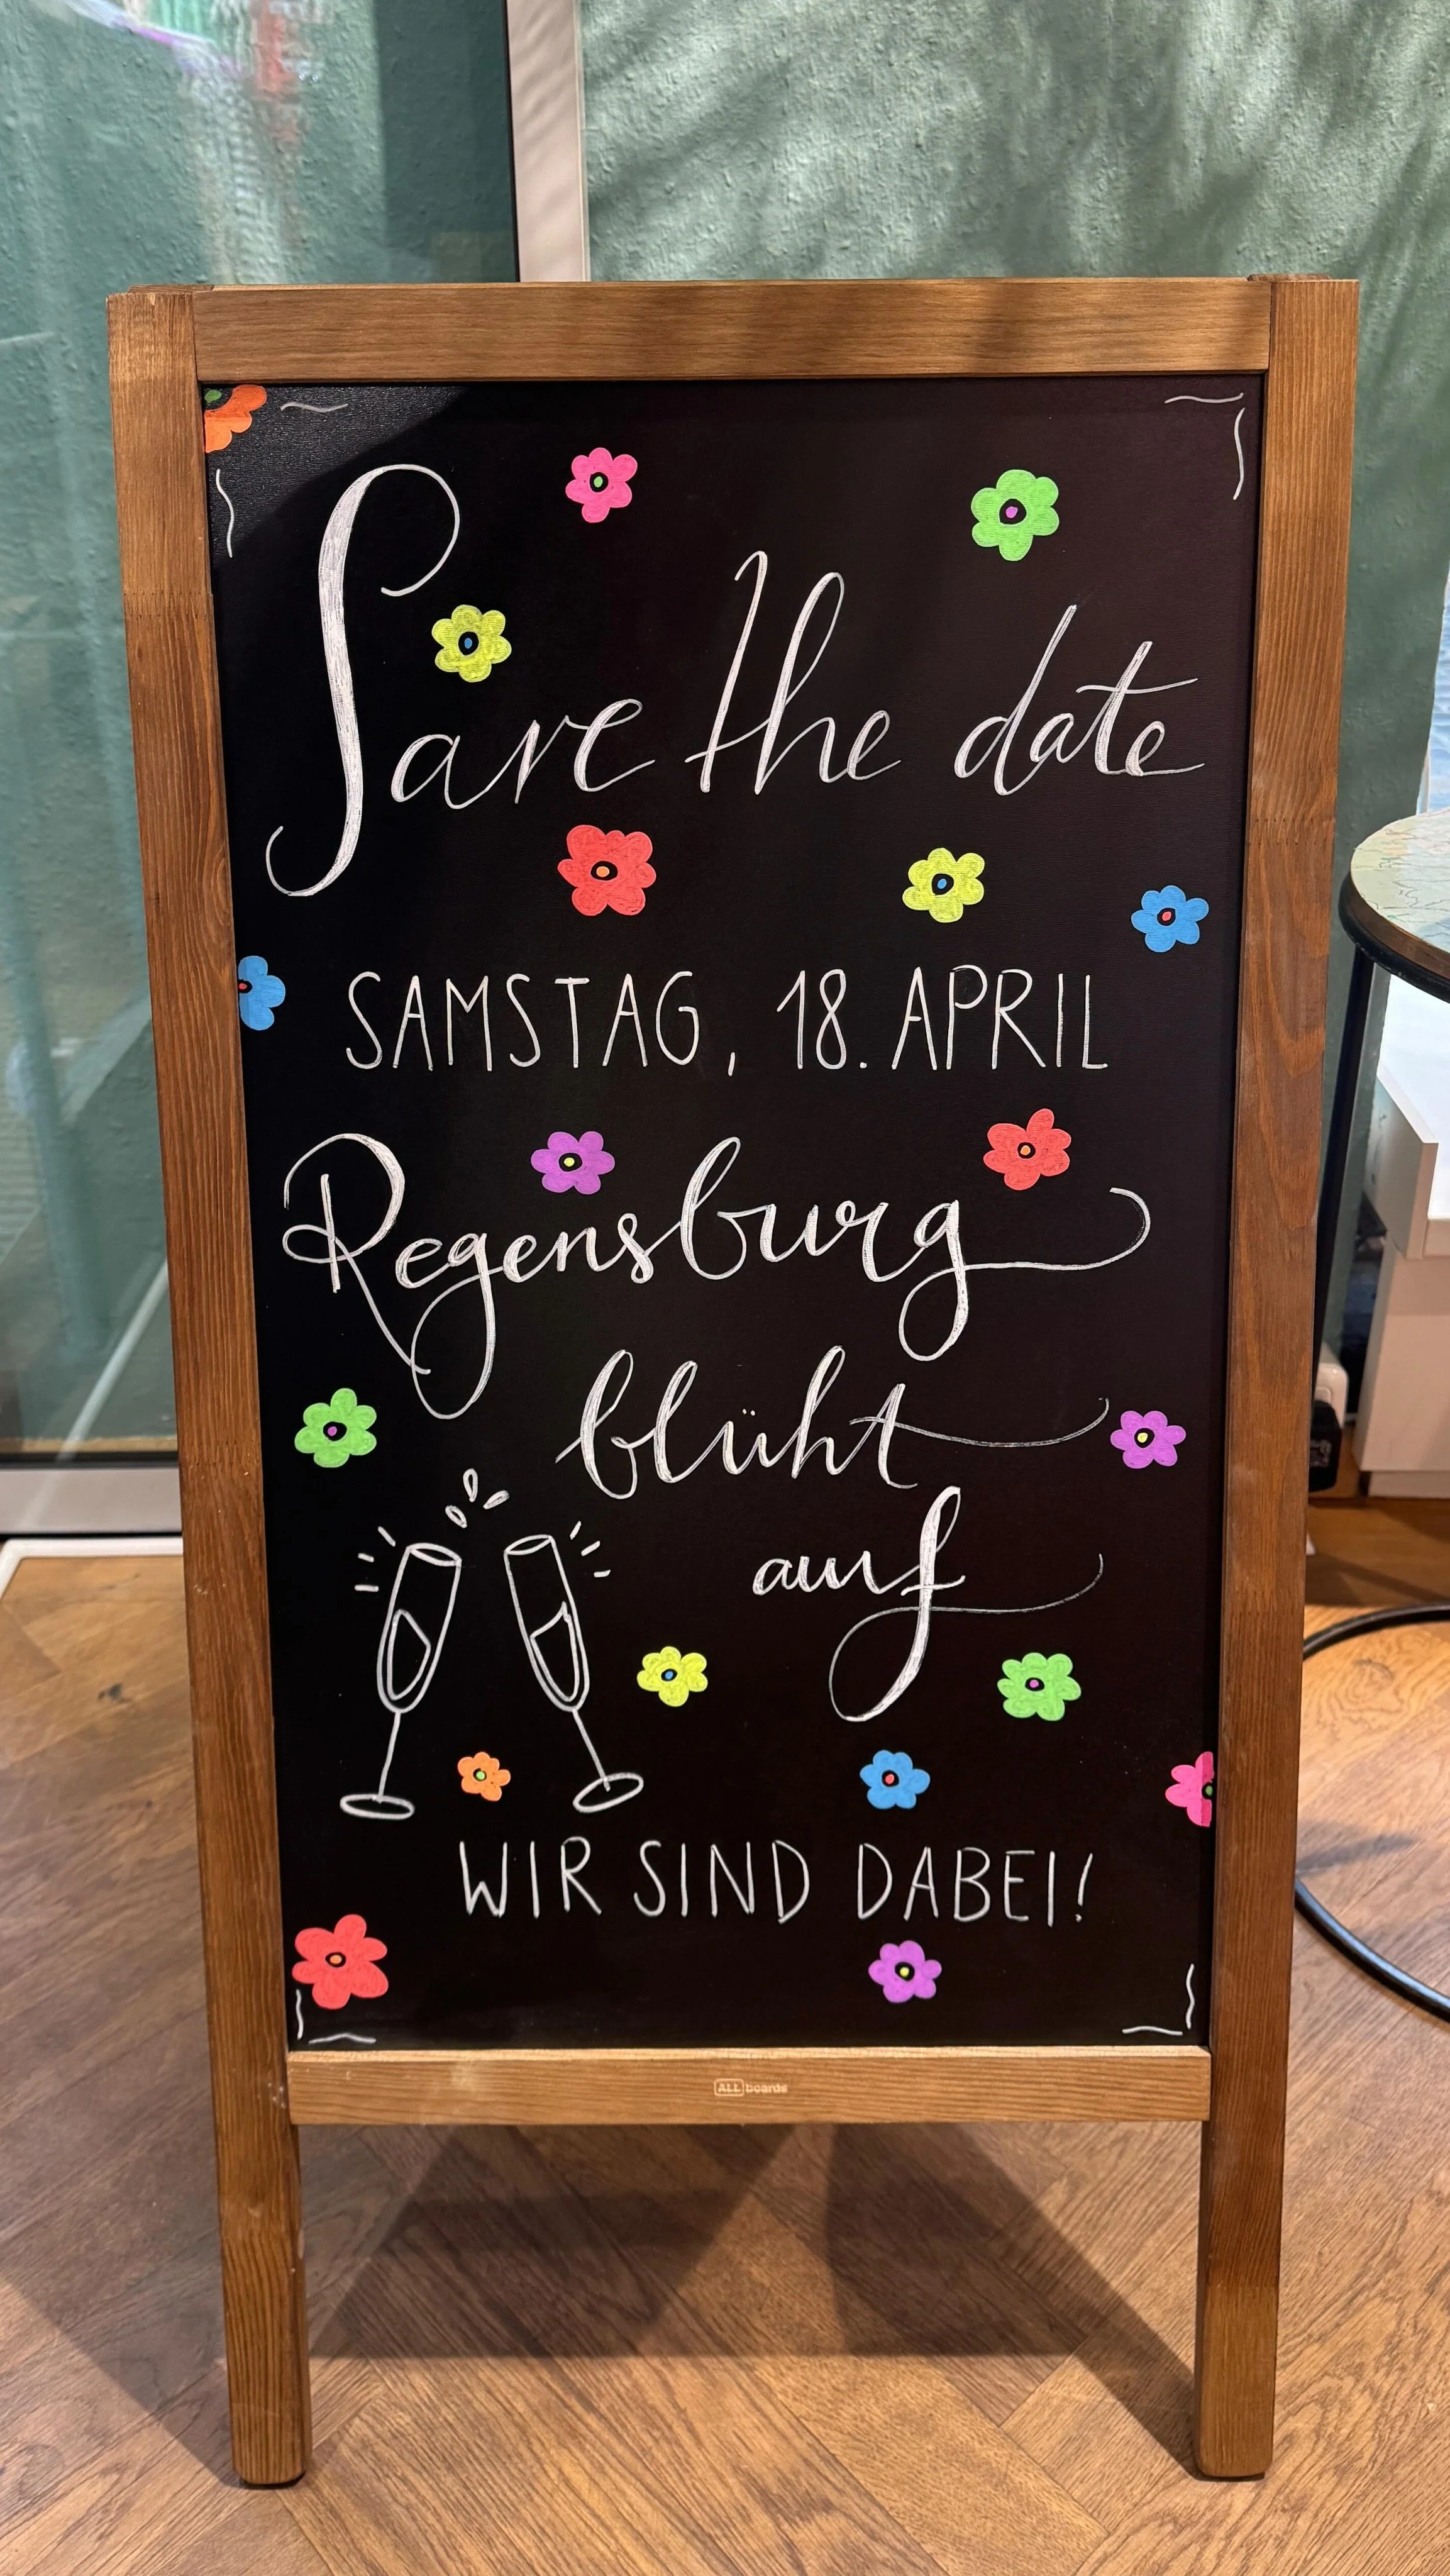 Save the date
SAMSTAG, 18. APRIL
Regensburg
blüht
auf
WIR SIND DABEI!
ALLboards